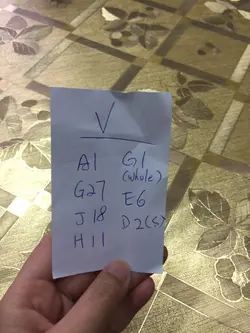 V
A1
G27
J18
H11
G1
(whole)
E6
D2(S)